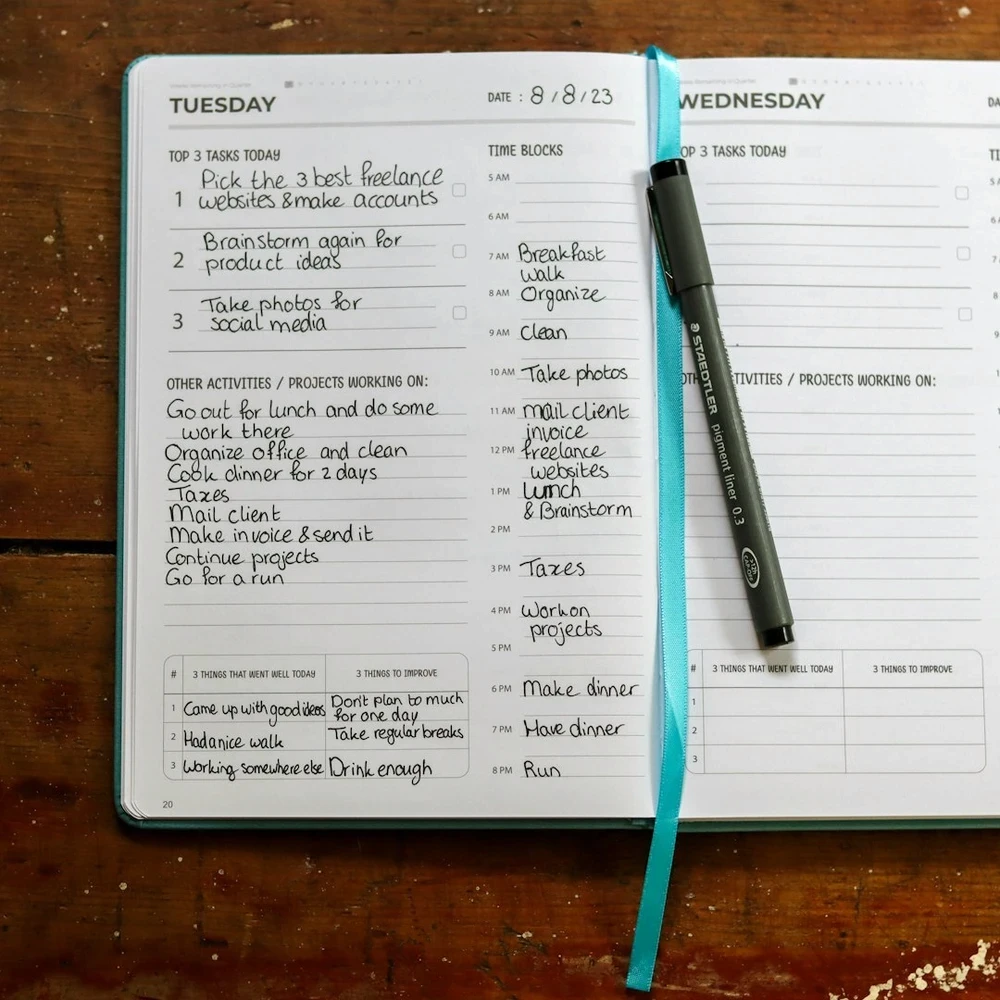 TUESDAY
DATE : 8/8/23
TOP 3 TASKS TODAY
1 Pick the 3 best freelance
websites & make accounts
2 Brainstorm again for
product ideas
3 Take photos for
social media
OTHER ACTIVITIES / PROJECTS WORKING ON:
Go out for lunch and do some
work there
Organize office and clean
Cook dinner for 2 days
Taxes
Mail client
Make invoice & send it
Continue projects
Go for a run
# 3 THINGS THAT WENT WELL TODAY 3 THINGS TO IMPROVE
1 Came up with good ideas Don't plan to much
for one day
2 Had a nice walk Take regular breaks
3 Working somewhere else Drink enough
20
TIME BLOCKS
5 AM
6 AM
7 AM Breakfast
walk
8 AM Organize
9 AM Clean
10 AM Take photos
11 AM Mail client
invoice
12 PM freelance
websites
1 PM Lunch
& Brainstorm
2 PM
3 PM Taxes
4 PM Work on
projects
5 PM
6 PM Make dinner
7 PM Have dinner
8 PM Run
STAEDTLER pigment liner 0.3
WEDNESDAY
DA
OP 3 TASKS TODAY
TIVITIES / PROJECTS WORKING ON:
# 3 THINGS THAT WENT WELL TODAY 3 THINGS TO IMPROVE
1
2
3